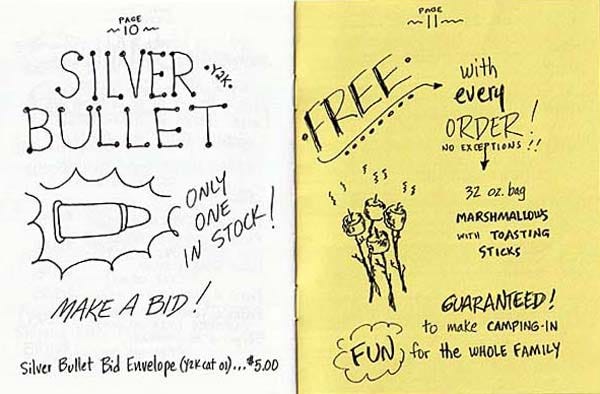 PAGE
~ 10 ~
SILVER
·Y2K·
BULLET
ONLY
ONE
IN STOCK!
MAKE A BID!
Silver Bullet Bid Envelope (Y2K cat 01)...$5.00
PAGE
~ 11 ~
FREE
with
every
ORDER!
NO EXCEPTIONS!!
32 oz. bag
MARSHMALLOWS
WITH TOASTING
STICKS
GUARANTEED!
to make CAMPING-IN
FUN for the WHOLE FAMILY